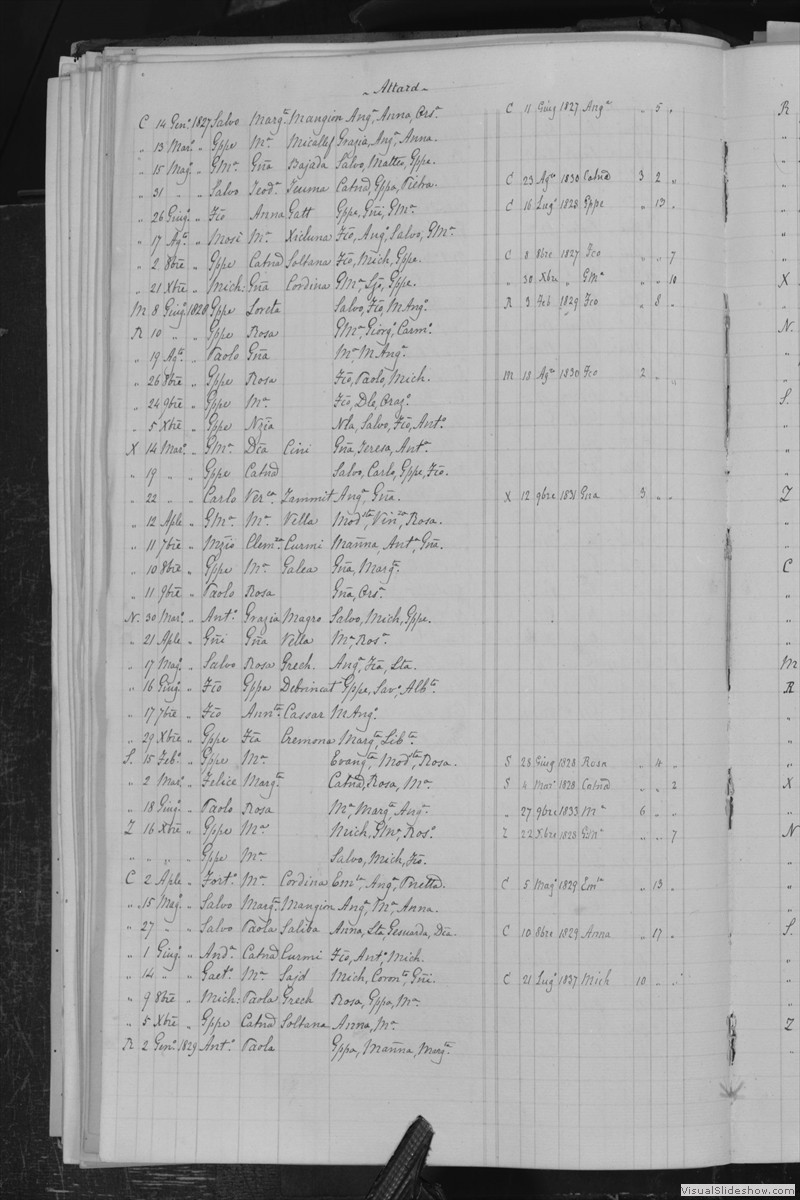 Attard
C 14 Genº 1827 Salvo Margta Mangion Angª, Anna, Orsª. C 11 Giug 1827 Angª " 5 "
" 13 Marº " Gppe Mª Micallef Grazia, Angª, Anna. R
" 15 Magº " GMª Gña Bajada Salvo, Matteo, Gppe.
" 31 " " Salvo Teodª Teuma Catnd, Gppa, Pietra. C 23 Agº 1830 Catnd 3 2 "
" 26 Giugº " Fco Anna Gatt Gppe, Gñi, GMª. C 16 Lugº 1828 Gppe " 13 "
" 17 Agº " Mosè Mª Xicluna Fco, Angº, Salvo, GMª.
" 2 8bre " Gppe Catnd Soltana Fco, Mich, Gppe. C 8 8bre 1827 Fco " " 7
" 21 Xbre " Mich: Gña Cordina GMª, Gppe. " 30 Xbre " GMª " " 10 X
M 8 Giugº 1828 Gppe Loreta Salvo, Fco, MAngº. R 3 Feb 1829 Fco " 8 "
R 10 " " Gppe Rosa GMª, Giorgº, Carmº. N.
" 19 Agº " Paolo Gña Mª, MAngº.
" 26 8bre " Gppe Rosa Fco, Paolo, Mich. M 18 Agº 1830 Fco 2 " "
" 24 9bre " Gppe Mª Fco, Dlo, Orazº. S.
" 5 Xbre " Gppe Nzia Nla, Salvo, Fco, Antº.
X 14 Marº " GMª Dca Cini Gña, Teresa, Antª.
" 19 " " Gppe Catnd Salvo, Carlo, Gppe, Fco.
" 22 " " Carlo Verca Zammit Angª, Gña. X 12 9bre 1831 Gna 3 " " Z
" 12 Aple " GMª Mª Vella Modsta, Vinza, Rosa.
" 11 7bre " Nzio Clemza Curmi Manna, Antª, Gña.
" 10 8bre " Gppe Mª Galea Gña, Margta. C
" 11 9bre " Paolo Rosa Gña, Orsª.
N. 30 Marº " Antº Grazia Magro Salvo, Mich, Gppe.
" 21 Aple " Gñi Gña Vella Mª, Rosª.
" 17 Magº " Salvo Rosa Grech. Angª, Fca, Lta. M
" 16 Giugº " Fco Gppa Debrincat Gppe, Savº, Albta. R
" 17 7bre " Fco Annta Cassar MAngº.
" 29 Xbre " Gppe Fca Cremona Margta, Libta.
S. 15 Febº " Gppe Mª Evangta, Modsta, Rosa. S 28 Giug 1828 Rosa " 4 "
" 2 Marº " Felice Margta Catnd, Rosa, Mª. S 4 Marº 1828 Catnd " " 2 X
" 18 Giugº " Paolo Rosa Mª, Margta, Angª. " 27 9bre 1833 Mª 6 " "
Z 16 Xbre " Gppe Mª Mich, GMª, Rosª. Z 22 Xbre 1828 GMª " " 7 N
" " " " Gppe Mª Salvo, Mich, Fco.
C 2 Aple " Fortº Mª Cordina Emla, Angª, Pnetta. C 5 Magº 1829 Emla " 13 "
" 15 Magº " Salvo Margta Mangion Angª, Mª, Anna.
" 27 " " Salvo Paola Saliba Anna, Lta, Gesuarda, Dca. C 10 8bre 1829 Anna " 17 " S.
" 1 Giugº " Andª Catnd Curmi Fco, Antº, Mich.
" 14 " " Gaetº Mª Sajd Mich, Corónto, Gñi. C 21 Lugº 1837 Mich 10 " "
" 9 8bre " Mich: Paola Grech Rosa, Gppa, Mª.
" 5 Xbre " Gppe Catnd Soltana Anna, Mª. Z
R 2 Genº 1829 Antº Paola Gppa, Manna, Margta.
VisualSlideshow.com